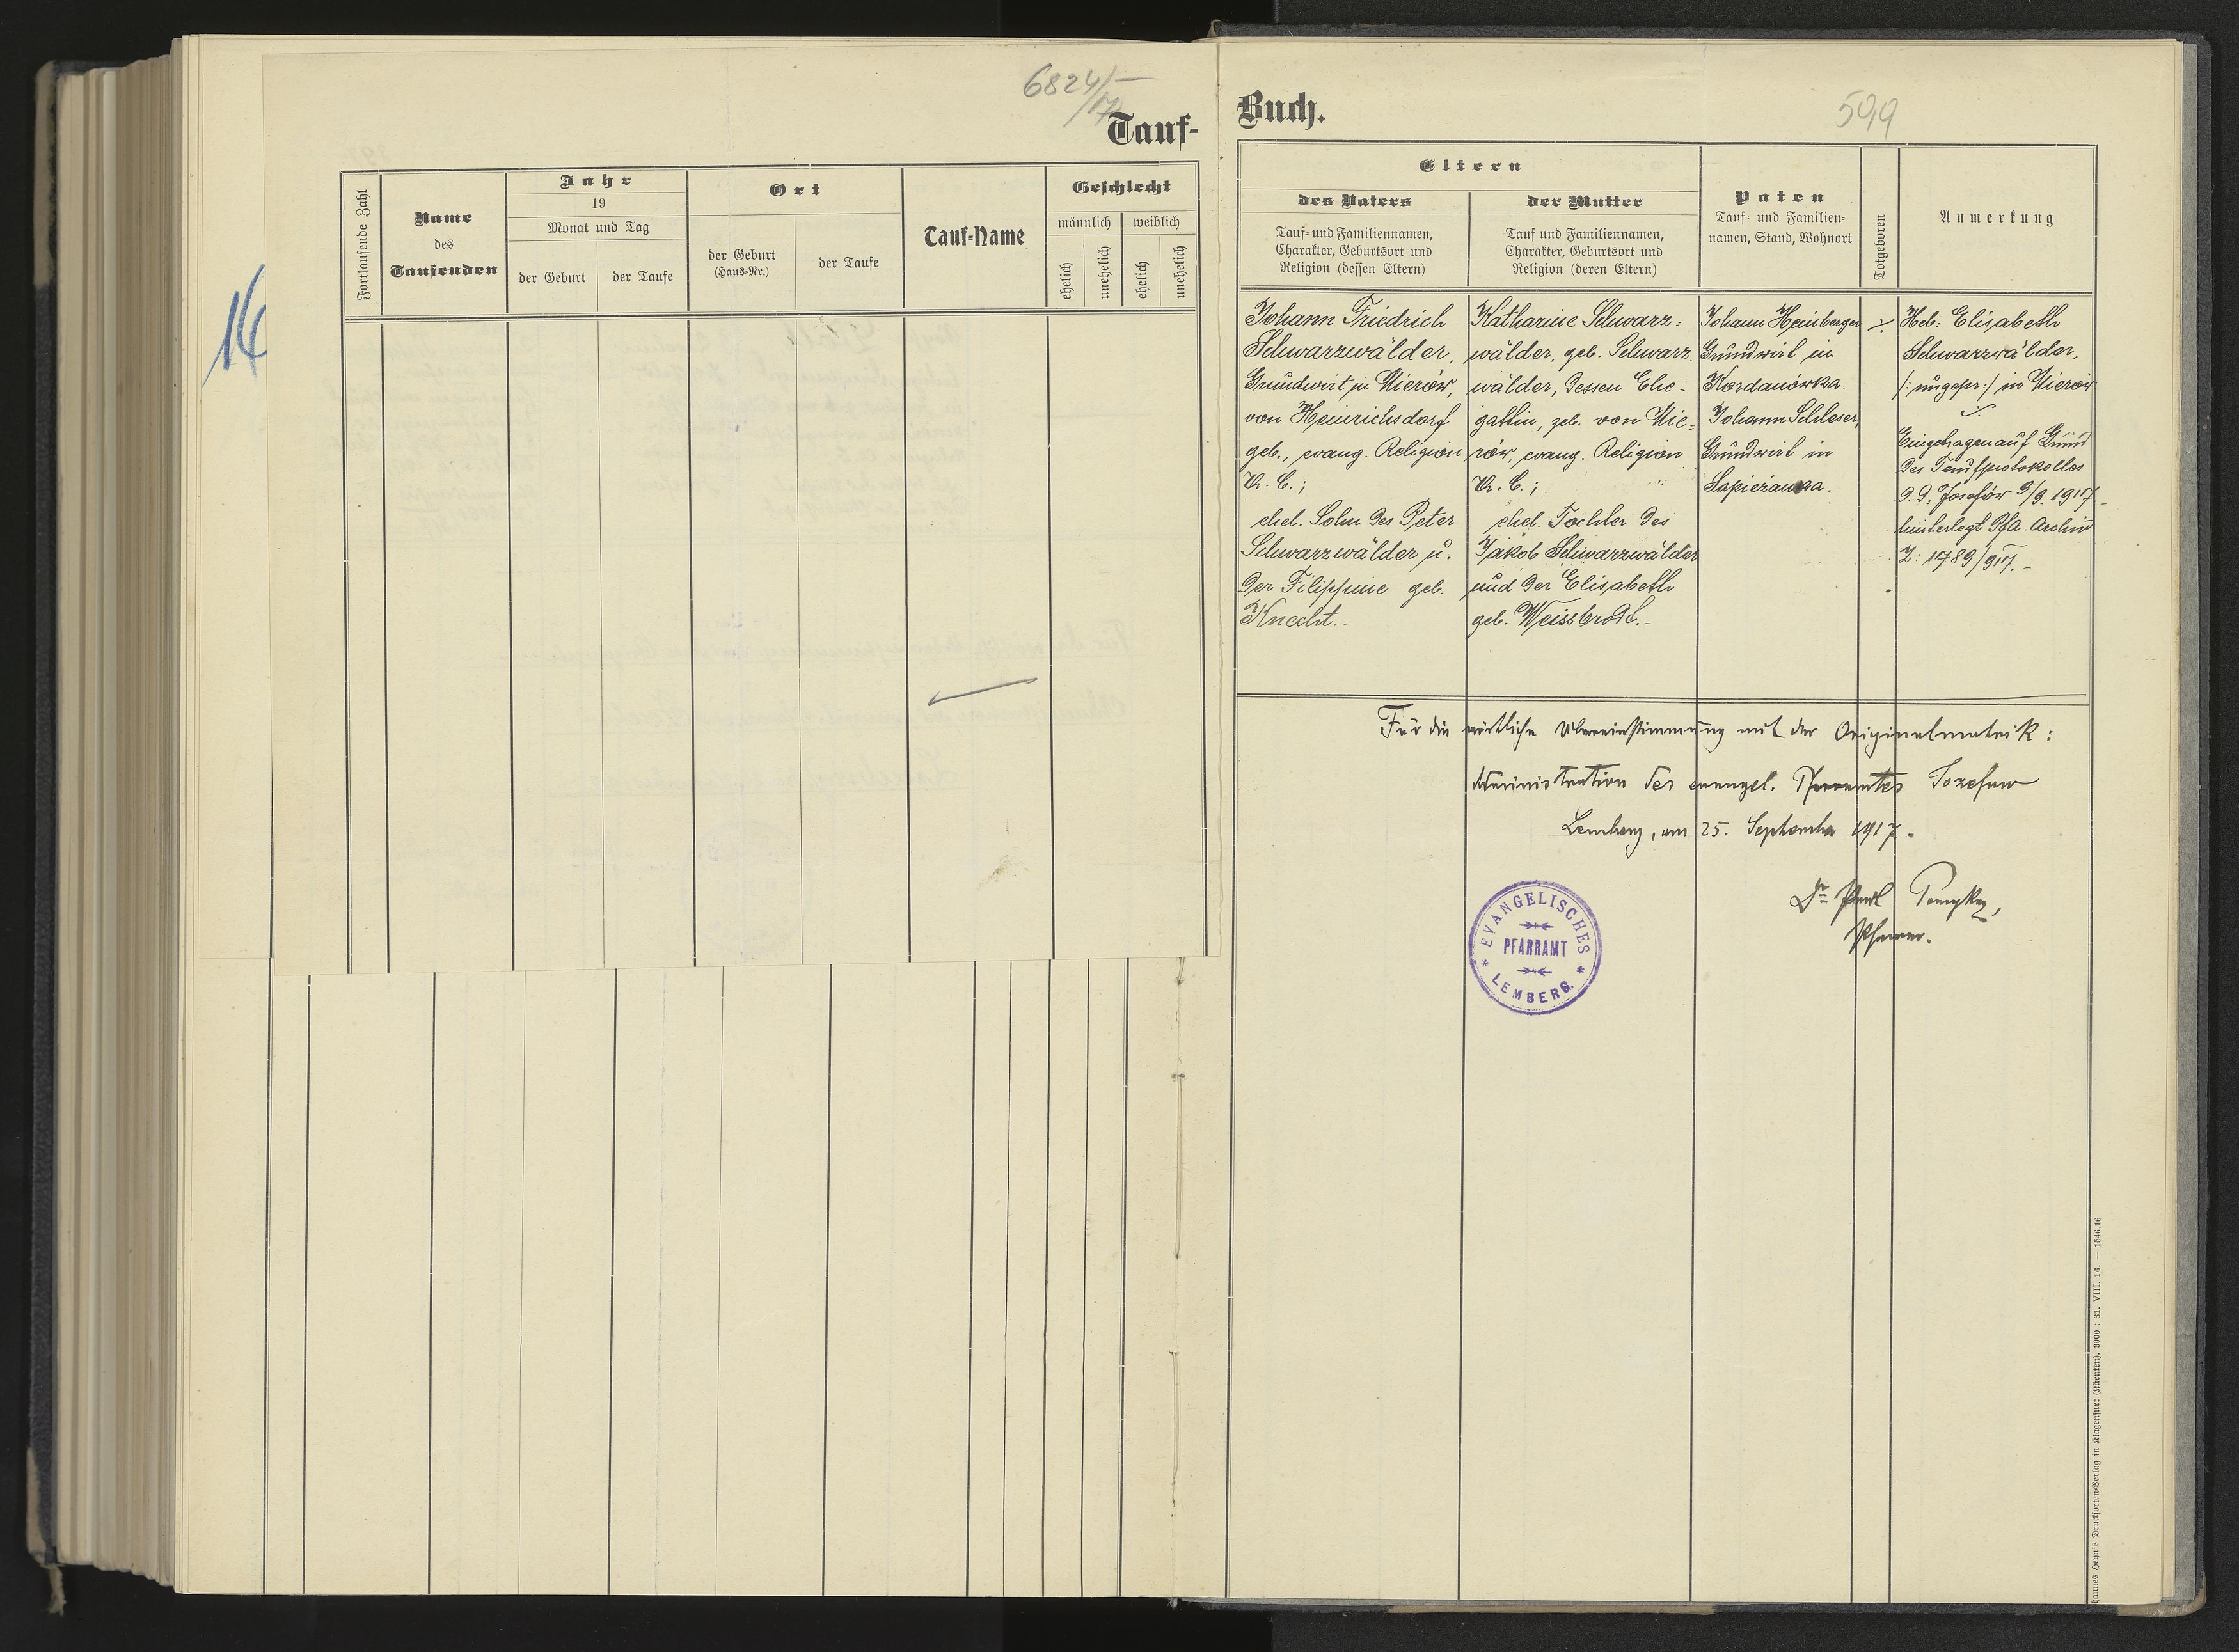 6824/17
Tauf-
Fortlaufende Zahl
Name
des
Taufenden
Jahr
19
Monat und Tag
der Geburt
der Taufe
Ort
der Geburt
(Haus-Nr.)
der Taufe
Tauf-Name
Geschlecht
männlich
weiblich
ehelich
unehelich
ehelich
unehelich
Buch.
599
Eltern
des Vaters
Tauf- und Familiennamen,
Charakter, Geburtsort und
Religion (dessen Eltern)
der Mutter
Tauf und Familiennamen,
Charakter, Geburtsort und
Religion (deren Eltern)
Paten
Tauf- und Familien-
namen, Stand, Wohnort
Totgeboren
Anmerkung
Johann Friedrich
Schwarzwälder,
Grundwirt in Mierów,
von Heinrichsdorf
geb., evang. Religion
A. C.;
ehel. Sohn des Peter
Schwarzwälder u.
der Filippine geb.
Knecht.-
Katharine Schwarz-
wälder, geb. Schwarz
wälder, dessen Ehe-
gattin, geb. von Mie-
rów, evang. Religion
A. C.;
ehel. Tochter des
Jakob Schwarzwälder
und der Elisabeth
geb. Weissbrodt.-
Johann Heinberger
Grundwirt in
Kordanówka.
Johann Schleser,
Grundwirt in
Sapieżanka.
Heb: Elisabeth
Schwarzwälder,
/:ungepr:/ in Mierów
Eingetragen auf Grund
des Taufprotokolles
d. d. Josefów 9/9. 1917
hinterlegt Pfa. Archiv
Z: 1789/917.-
Für die wörtliche Übereinstimmung mit der Originalmatrik:
Administration des evangel. Pfarramtes Josefow
Lemberg, am 25. September 1917.
Dr Paul
Pfarrer.
EVANGELISCHES
PFARRAMT
LEMBERG.
hannes Heyn's Drucksorten-Verlag in Klagenfurt (Kärnten). 3000 : 31. VIII. 16. — 1546.16